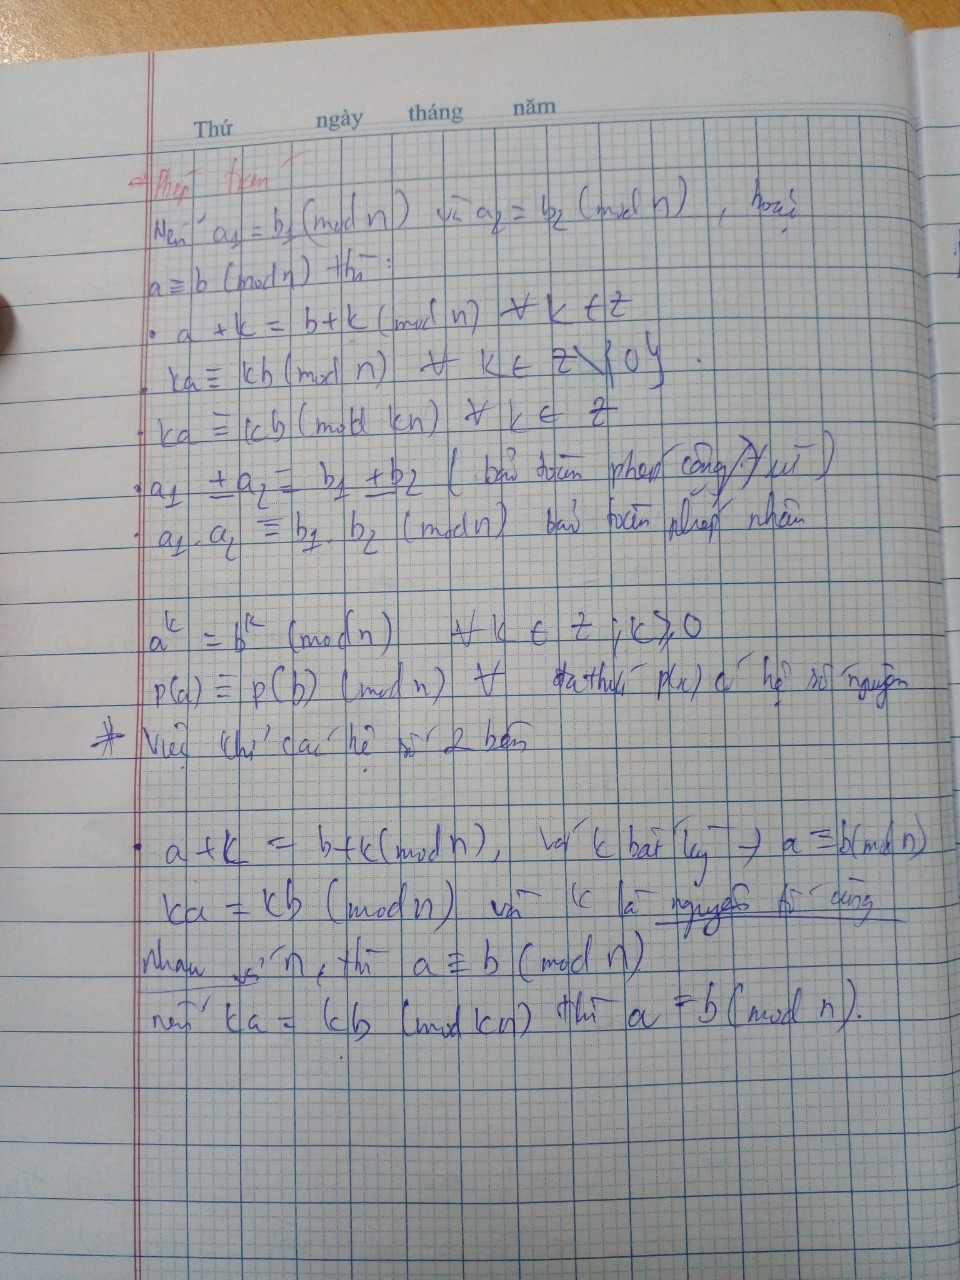 Thứ ngày tháng năm
Phép
Nếu a₁ = b₁ (mod n) và a₂ = b₂ (mod n), hoặc
a ≡ b (mod n) thì:
• a + k = b + k (mod n) ∀ k ∈ Z
• ka ≡ kb (mod n) ∀ k ∈ Z \ {0}.
• ka ≡ kb (mod kn) ∀ k ∈ Z
• a₁ ± a₂ = b₁ ± b₂ ( bảo toàn phép cộng / trừ )
• a₁. a₂ ≡ b₁. b₂ (mod n) bảo toàn phép nhân
aᵏ = bᵏ (mod n) ∀ k ∈ Z ; k ⩾ 0
p(a) ≡ p(b) (mod n) ∀ đa thức p(x) có hệ số nguyên
* Việc các hệ số 2 bên
• a + k = b + k (mod n), với k bất kỳ → a ≡ b (mod n)
ka = kb (mod n) và k là nguyên tố cùng
nhau với n, thì a ≡ b (mod n)
nếu ka = kb (mod kn) thì a = b (mod n).